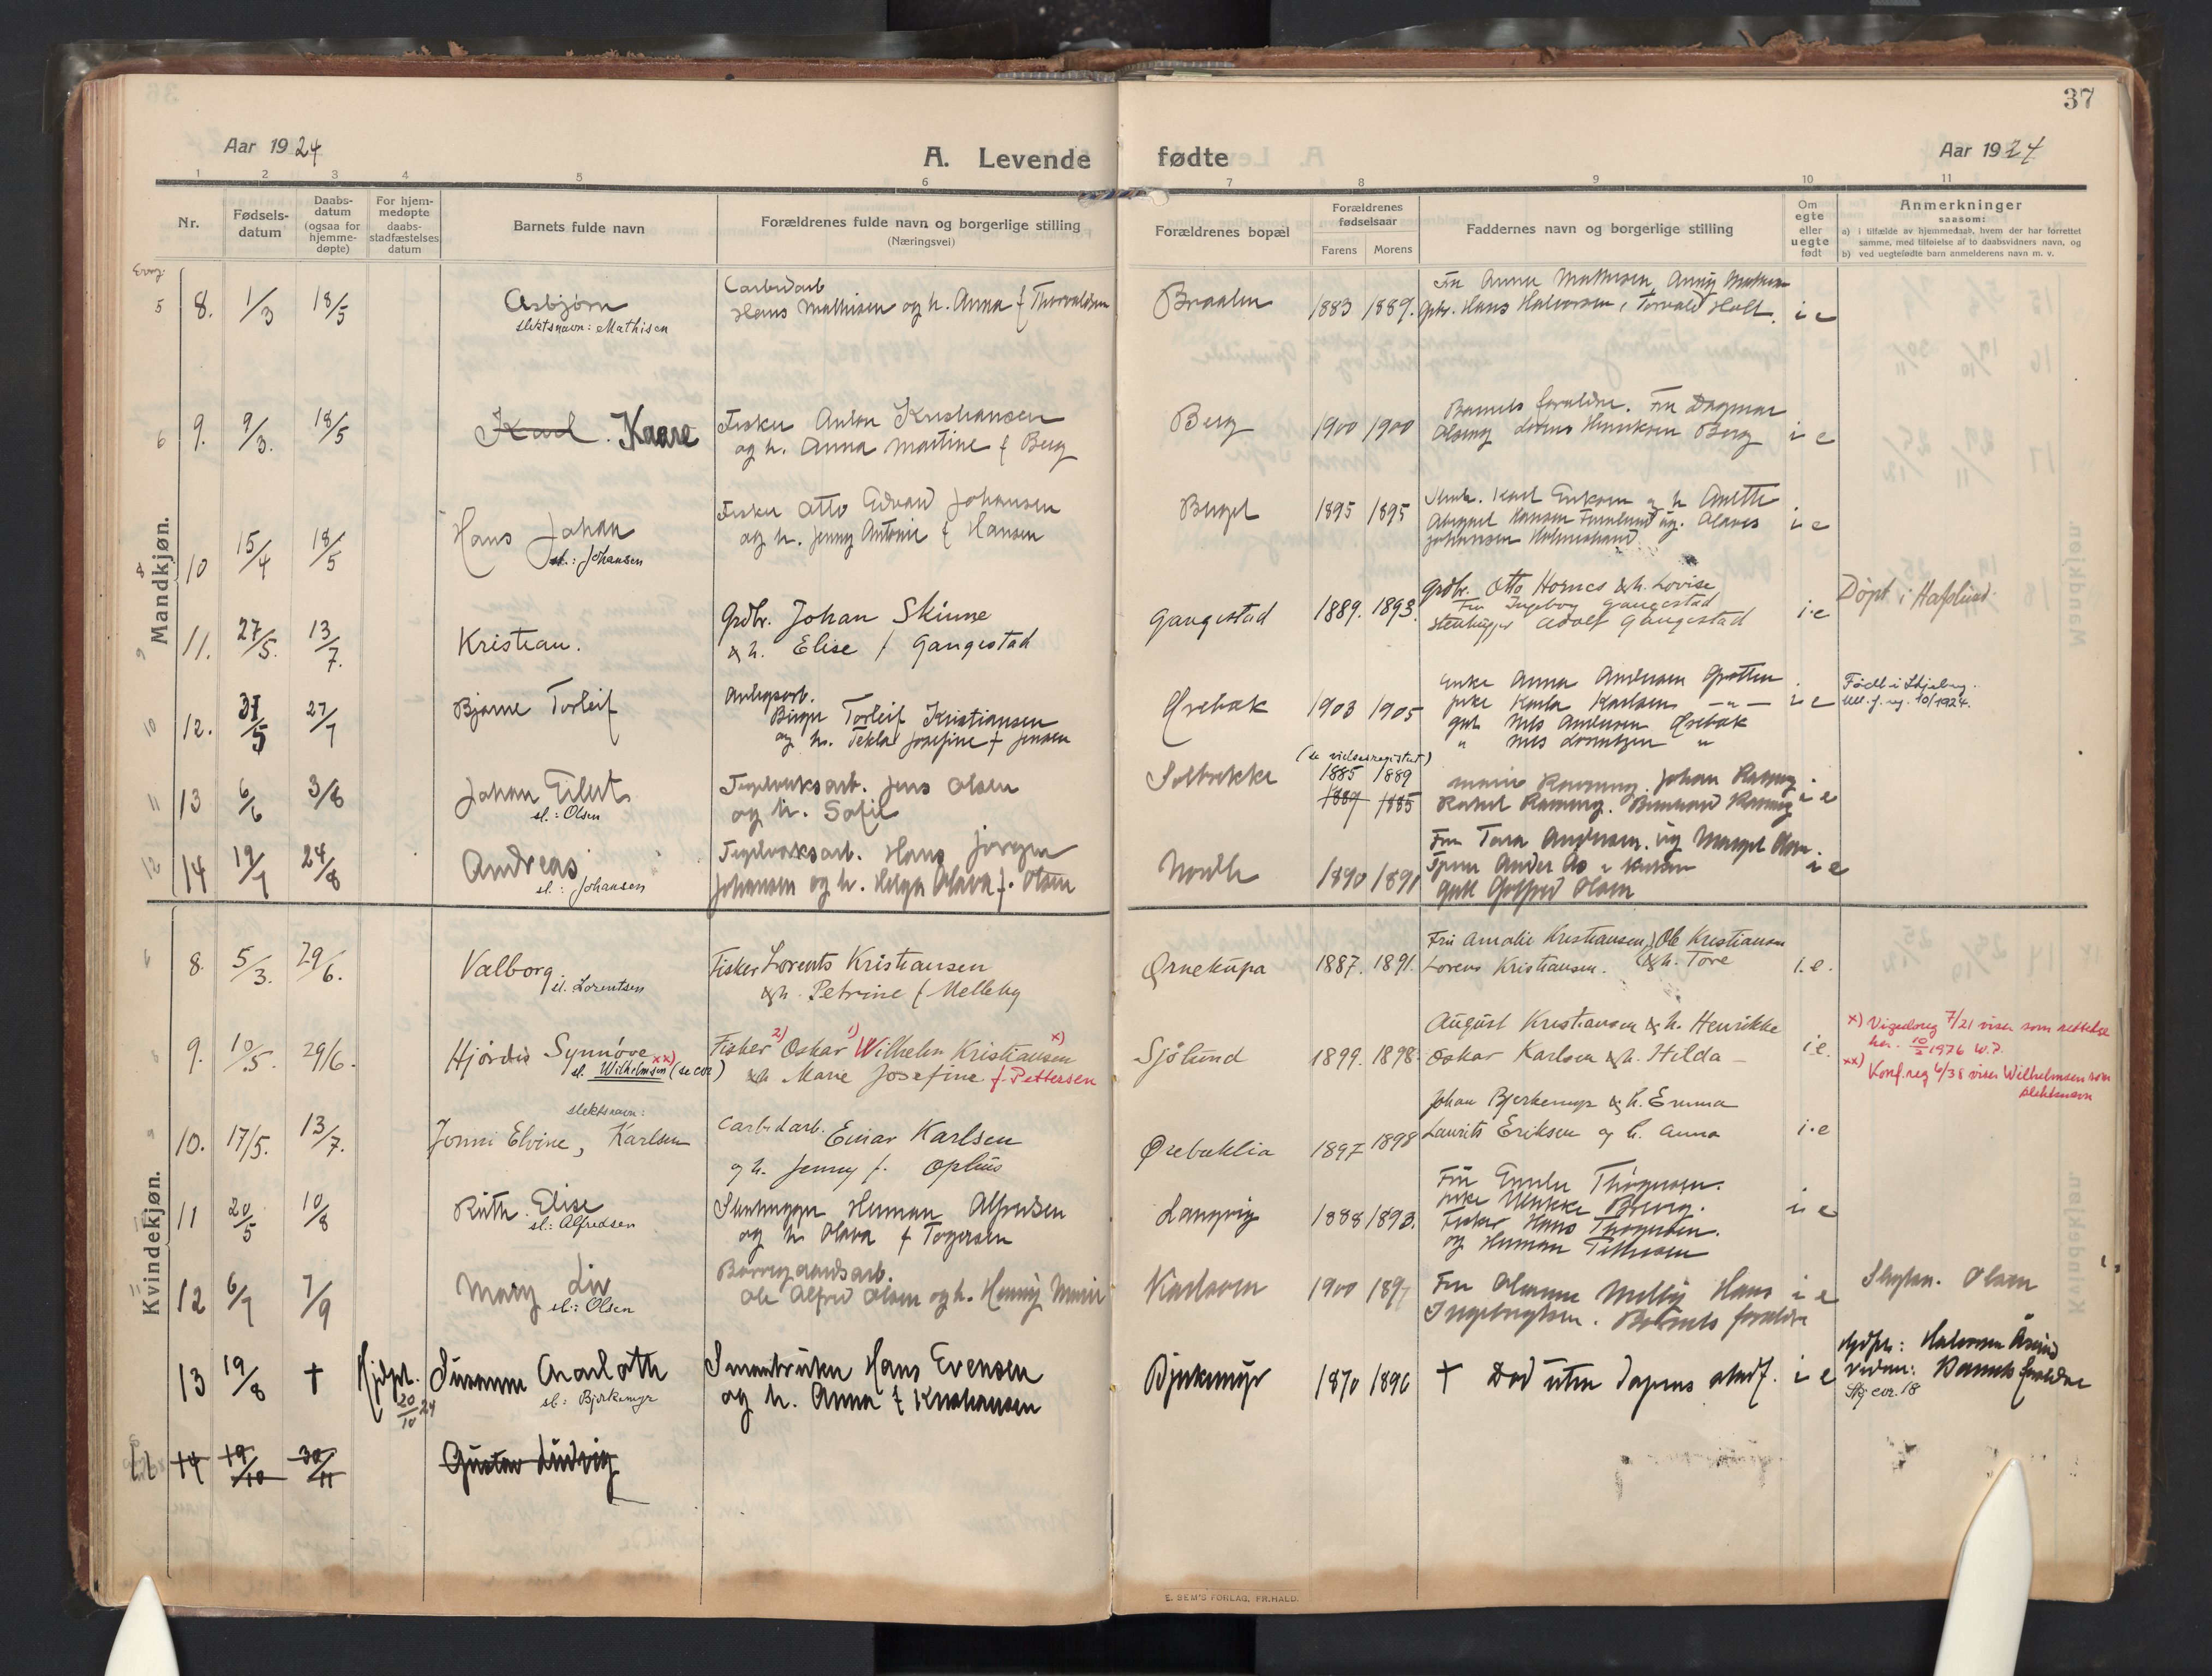 37
Aar 1924
A. Levende fødte
Aar 1924
1 2 3 4 5 6 7 8 9 10 11
Nr.
Fødsels-
datum
Daabs-
datum
(ogsaa for
hjemme-
døpte)
For hjem-
medøpte
daabs-
stadfæstelses
datum
Barnets fulde navn
Forældrenes fulde navn og borgerlige stilling
(Næringsvei)
Forældrenes bopæl
Forældrenes
fødselsaar
Farens Morens
Faddernes navn og borgerlige stilling
Om
egte
eller
uegte
født
Anmerkninger
saasom:
a) i tilfælde av hjemmedaab, hvem der har forrettet
samme, med tilføielse af to daabsvidners navn, og
b) ved uegtefødte barn anmelderens navn m. v.
Mandkjøn.
5 8. 1/3 18/5
Asbjørn
slektsnavn: Mathisen
Carbidarb
Hans Mathisen og h. Anna f Thorvaldsen
Braaten
1883 1889.
Fru Anna Mathisen, Anny Mathisen
Gbr. Hans Halvorsen, Torvald Holt.
i e
6 9. 9/3. 18/5
Karl. Kaare
Fisker Anton Kristiansen
og h. Anna Martine f Berg
Berg
1900 1900
Barnets forældre. Fru Dagmar
Olsen Henriksen Berg
i e
8 10 15/4 18/5
Hans Johan
sl.: Johansen
Fisker Otto Edvard Johansen
og h. Jenny Antonie f Hansen
Berget
1895 1895
Karl Eriksen og h Anette
Hansen ug. Olaves
Johansen Holmestrand
i e
9 11. 27/5. 13/7.
Kristian.
Grdbr. Johan Skinne
& h. Elise f Gangestad
Gangestad
1889. 1893.
Grdbr. Otto Hornes & h. Lovise
Fru Ingeborg Gangestad
Stenhugger Adolf Gangestad
i e
Døpt i Hafslund.
10 12. 31/5 27/7
Bjarne Torleif
Anlegsarb.
Birger Torleif Kristiansen
og h. Tekla Josefine f Jensen
Ørebæk
1903 1905
Enke Anna Andersen Grotten
pike Karla Karlsen — „ —
gut Nils Andersen Ørebæk
" Nils Lorentzen "
i e
Født i Skjeberg.
Ull. f. reg. 10/1924.
11 13 6/6 3/8
Johan Eilert
sl.: Olsen
Teglverksarb. Jens Olsen
og h. Sofie
Solbrekke
(se vielsesregistret)
1885 1889
1889 1885
Marie Ramung. Johan Ramung.
Rakel Ramung. Bernhard Ramung
i e
12 14 19/7 24/8
Andreas
sl.: Johansen
Teglverksarb. Hans Jørgen
Johansen og h. Helga Olava f. Olsen
Nordli
1890 1891
Fru Tora Andersen. ug Margit Olsen.
Anders As
Gutt Gotfred Olsen
i e
Kvindekjøn.
8. 5/3. 29/6.
Valborg
sl. Lorentsen
Fisker Lorents Kristiansen
& h. Petrine f Melleby
Ørnekupa
1887. 1891.
Fru Amalie Kristiansen, Ole Kristiansen
Lorens Kristiansen. & h. Tore
i. e.
9. 10/5. 29/6.
Hjørdis Synnøve xx)
sl. Wilhelmsen (se cor)
Fisker 2) Oskar 1) Wilhelm Kristiansen x)
& h. Marie Josefine f. Pettersen
Sjølund
1899. 1898.
August Kristiansen & h. Henrikke
Oskar Karlsen & h. Hilda –
i e.
x) Vigselsreg 7/21 viser som rettelse
her. 10/2 1976 W.P.
xx) Konf.reg 6/38 viser Wilhelmsen som
slektsnavn
10. 17/5. 13/7.
slektsnavn:
Jonni Elvine, Karlsen
Carbidarb. Einar Karlsen
og h. Jenny f. Ophus
Ørebæklia
1897 1898
Johan Bjerkemyr & h. Emma
Laurits Eriksen og h. Anna
i. e
11 20/5 10/8
Ruth Elise
sl: Alfredsen
Stenhugger Herman Alfredsen
og h Olava f Togersen
Langvig
1888 1893.
Fru Emilie Thøgersen.
pike Ulrikke Brevig.
Fisker Hans Thøgersen.
og Herman
i e
12 6/7 7/9
Mary Liv
sl.: Olsen
Borregaardsarb.
Ole Alfred Olsen og h. Henny Marie
Karlsøen
1900 1897
Fru Melby Hans
Ingebrigtsen. Barnets forældre
i e
Slegtsn. Olsen
13 19/8 † Hjdpt. 20/10 24
Susanne Charloth
sl: Bjerkemyr
Smaabruker Hans Evensen
og h. Anna f Kristiansen
Bjerkemyr
1870 1896
† Død uten daapens stadf.
i e
Hjdpt: Halvorsen Åsund
Vidner: Barnets forældre
Skj cor. 18
14 19/10 30/11
Gustav Ludvig
E. SEM'S FORLAG, FR.HALD.